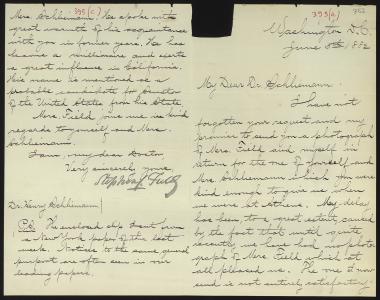 393(a)
Washington D.C.
June 8th, 1882
My Dear Dr. Schliemann.
I have not
forgotten your request and my
promise to send you a photograph
of Mrs. Field and myself in
return for the one of yourself and
Mrs. Schliemann which you were
kind enough to give us when
we were at Athens. My delay
has been, to a great extent, caused
by the fact that until quite
recently, we have had no photo-
graph of Mrs. Field which at
all pleased us. The one I now
send is not entirely satisfactory
393(c)
Mrs. Schliemann. He spoke with
great warmth of his acquaintance
with you in former years. He has
become a millionaire and exerts
a great influence in California.
His name is mentioned as a
probable candidate for Senator
of the United States from his State.
Mrs. Field joins me in kind
regards to yourself and Mrs.
Schliemann.
I am, my dear Doctor
Very sincerely yours,
Stephen J. Field
Dr. Henry Schliemann
P.S. The enclosed slip I cut from
a New York paper of this last
week. Notices to the same general
purport are often seen in our
leading papers.